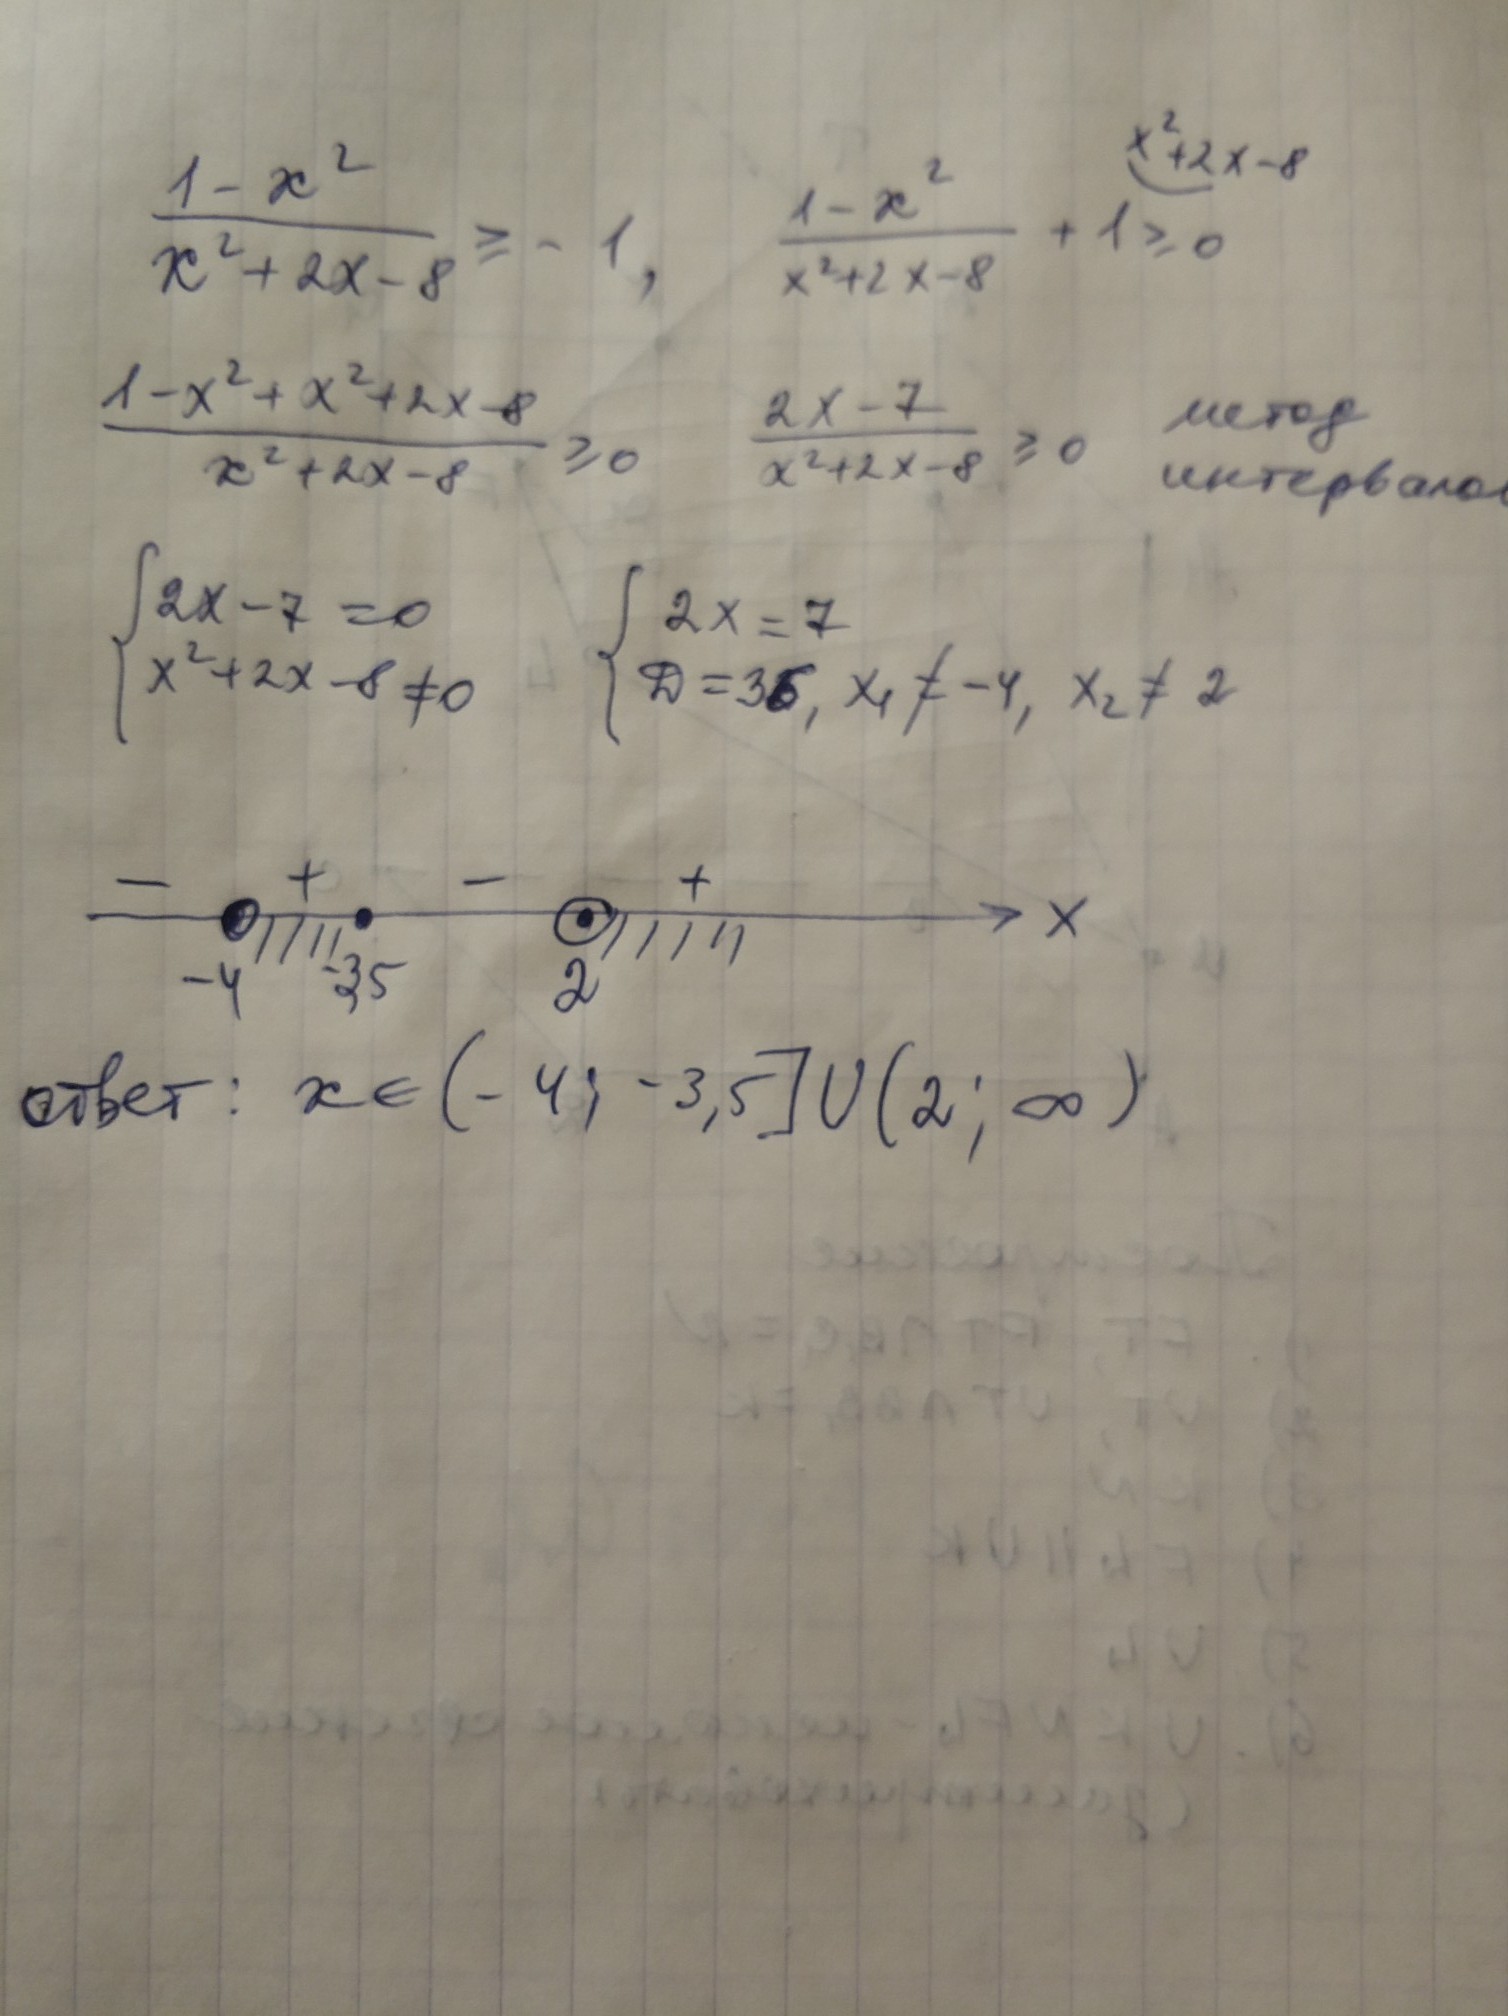 1-x²/x²+2x-8 ≥ -1, 1-x²/x²+2x-8 + 1 ≥ 0 x²+2x-8
1-x²+x²+2x-8/x²+2x-8 ≥ 0 2x-7/x²+2x-8 ≥ 0 метод интервалов
{2x-7=0 {2x=7
x²+2x-8≠0 D=36, x₁≠-4, x₂≠2
- + - + x
-4 -3,5 2
ответ: x∈(-4; -3,5]∪(2; ∞)